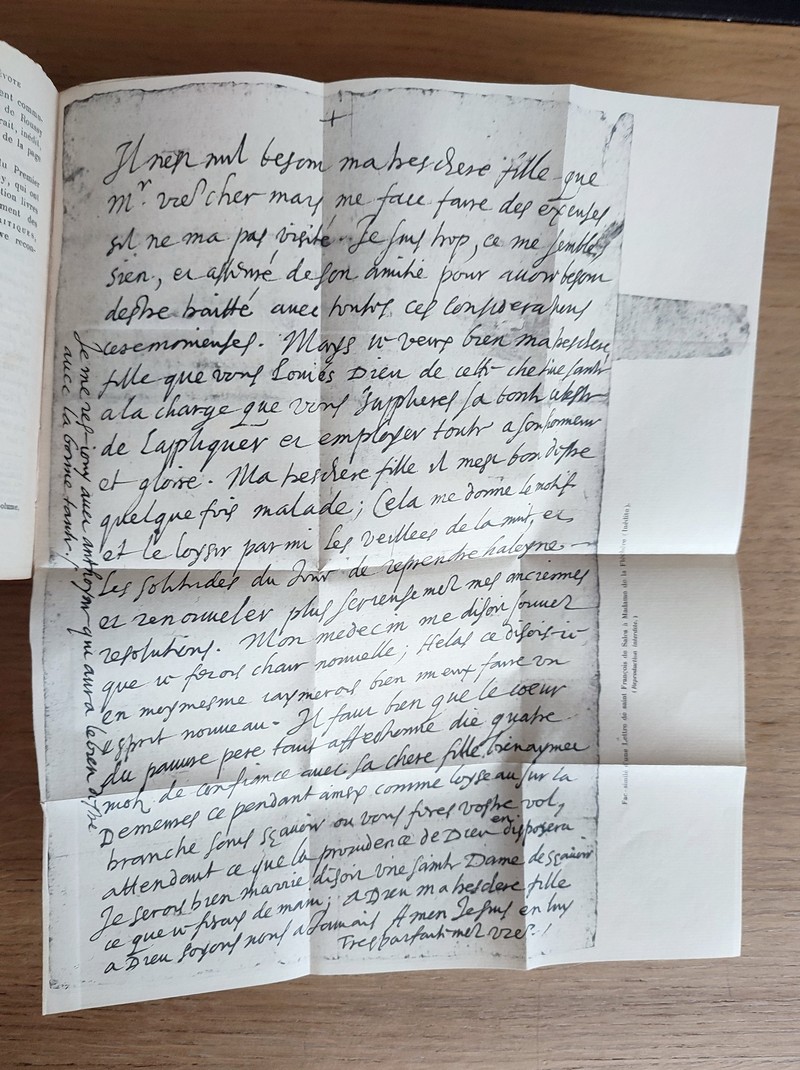 VOTE
ent comm-
de Roussy
rait, inédit,
de la page
du Premier
y, qui ont
tion livres
ment des
ITIQUES,
we recon-
olume.
+
Il nest nul besoin ma tres chere fille que
mr. vre cher mary me face faire des excuses
sil ne ma pas visité. Je suis trop, ce me semble,
sien, et asseuré de son amitié pour avoir besoin
destre traitté avec toutes ces considerations
ceremonieuses. Mays je veux bien ma tres chere
fille que vous Louies Dieu de cette chetive santé
a la charge que vous supplieres sa bonté celeste
de l'appliquer et employer toute a son honneur
et gloire. Ma tres chere fille il mest bon destre
quelque fois malade; Cela me donne le motif
et le loysir parmi les veillees de la nuit, et
les solitudes du Jour de reprendre haleyne
et renouveler plus serieusemet mes anciennes
resolutions. Mon medecin me disoit souvet
que je ferois chair nouvelle; Helas ce disois-je
en moymesme iaymerois bien mieux faire un
esprit nouveau. Il faut bien que le coeur
du pauvre pere tout affectionné die quatre
motz de confiance avec sa chere fille bienaymee
Demeures ce pendant ainsy comme loyseau sur la
branche sans sçavoir ou vous feres vostre vol,
attendant ce que la providence de Dieu en disposera
Je serois bien marrie disoit une sainte Dame de sçavoir
ce que je feray demain; a Dieu ma tres chere fille
a Dieu soyons nous a Jamais Amen Jesus
Tres parfaitemet vre .!
Je me res-iouy avec anthoyne qui aura le bien destre
avec la bonne tante./.
Fac-similé d'une Lettre de saint François de Sales à Madame de la Fléchère (Inédite).
(Reproduction interdite.)